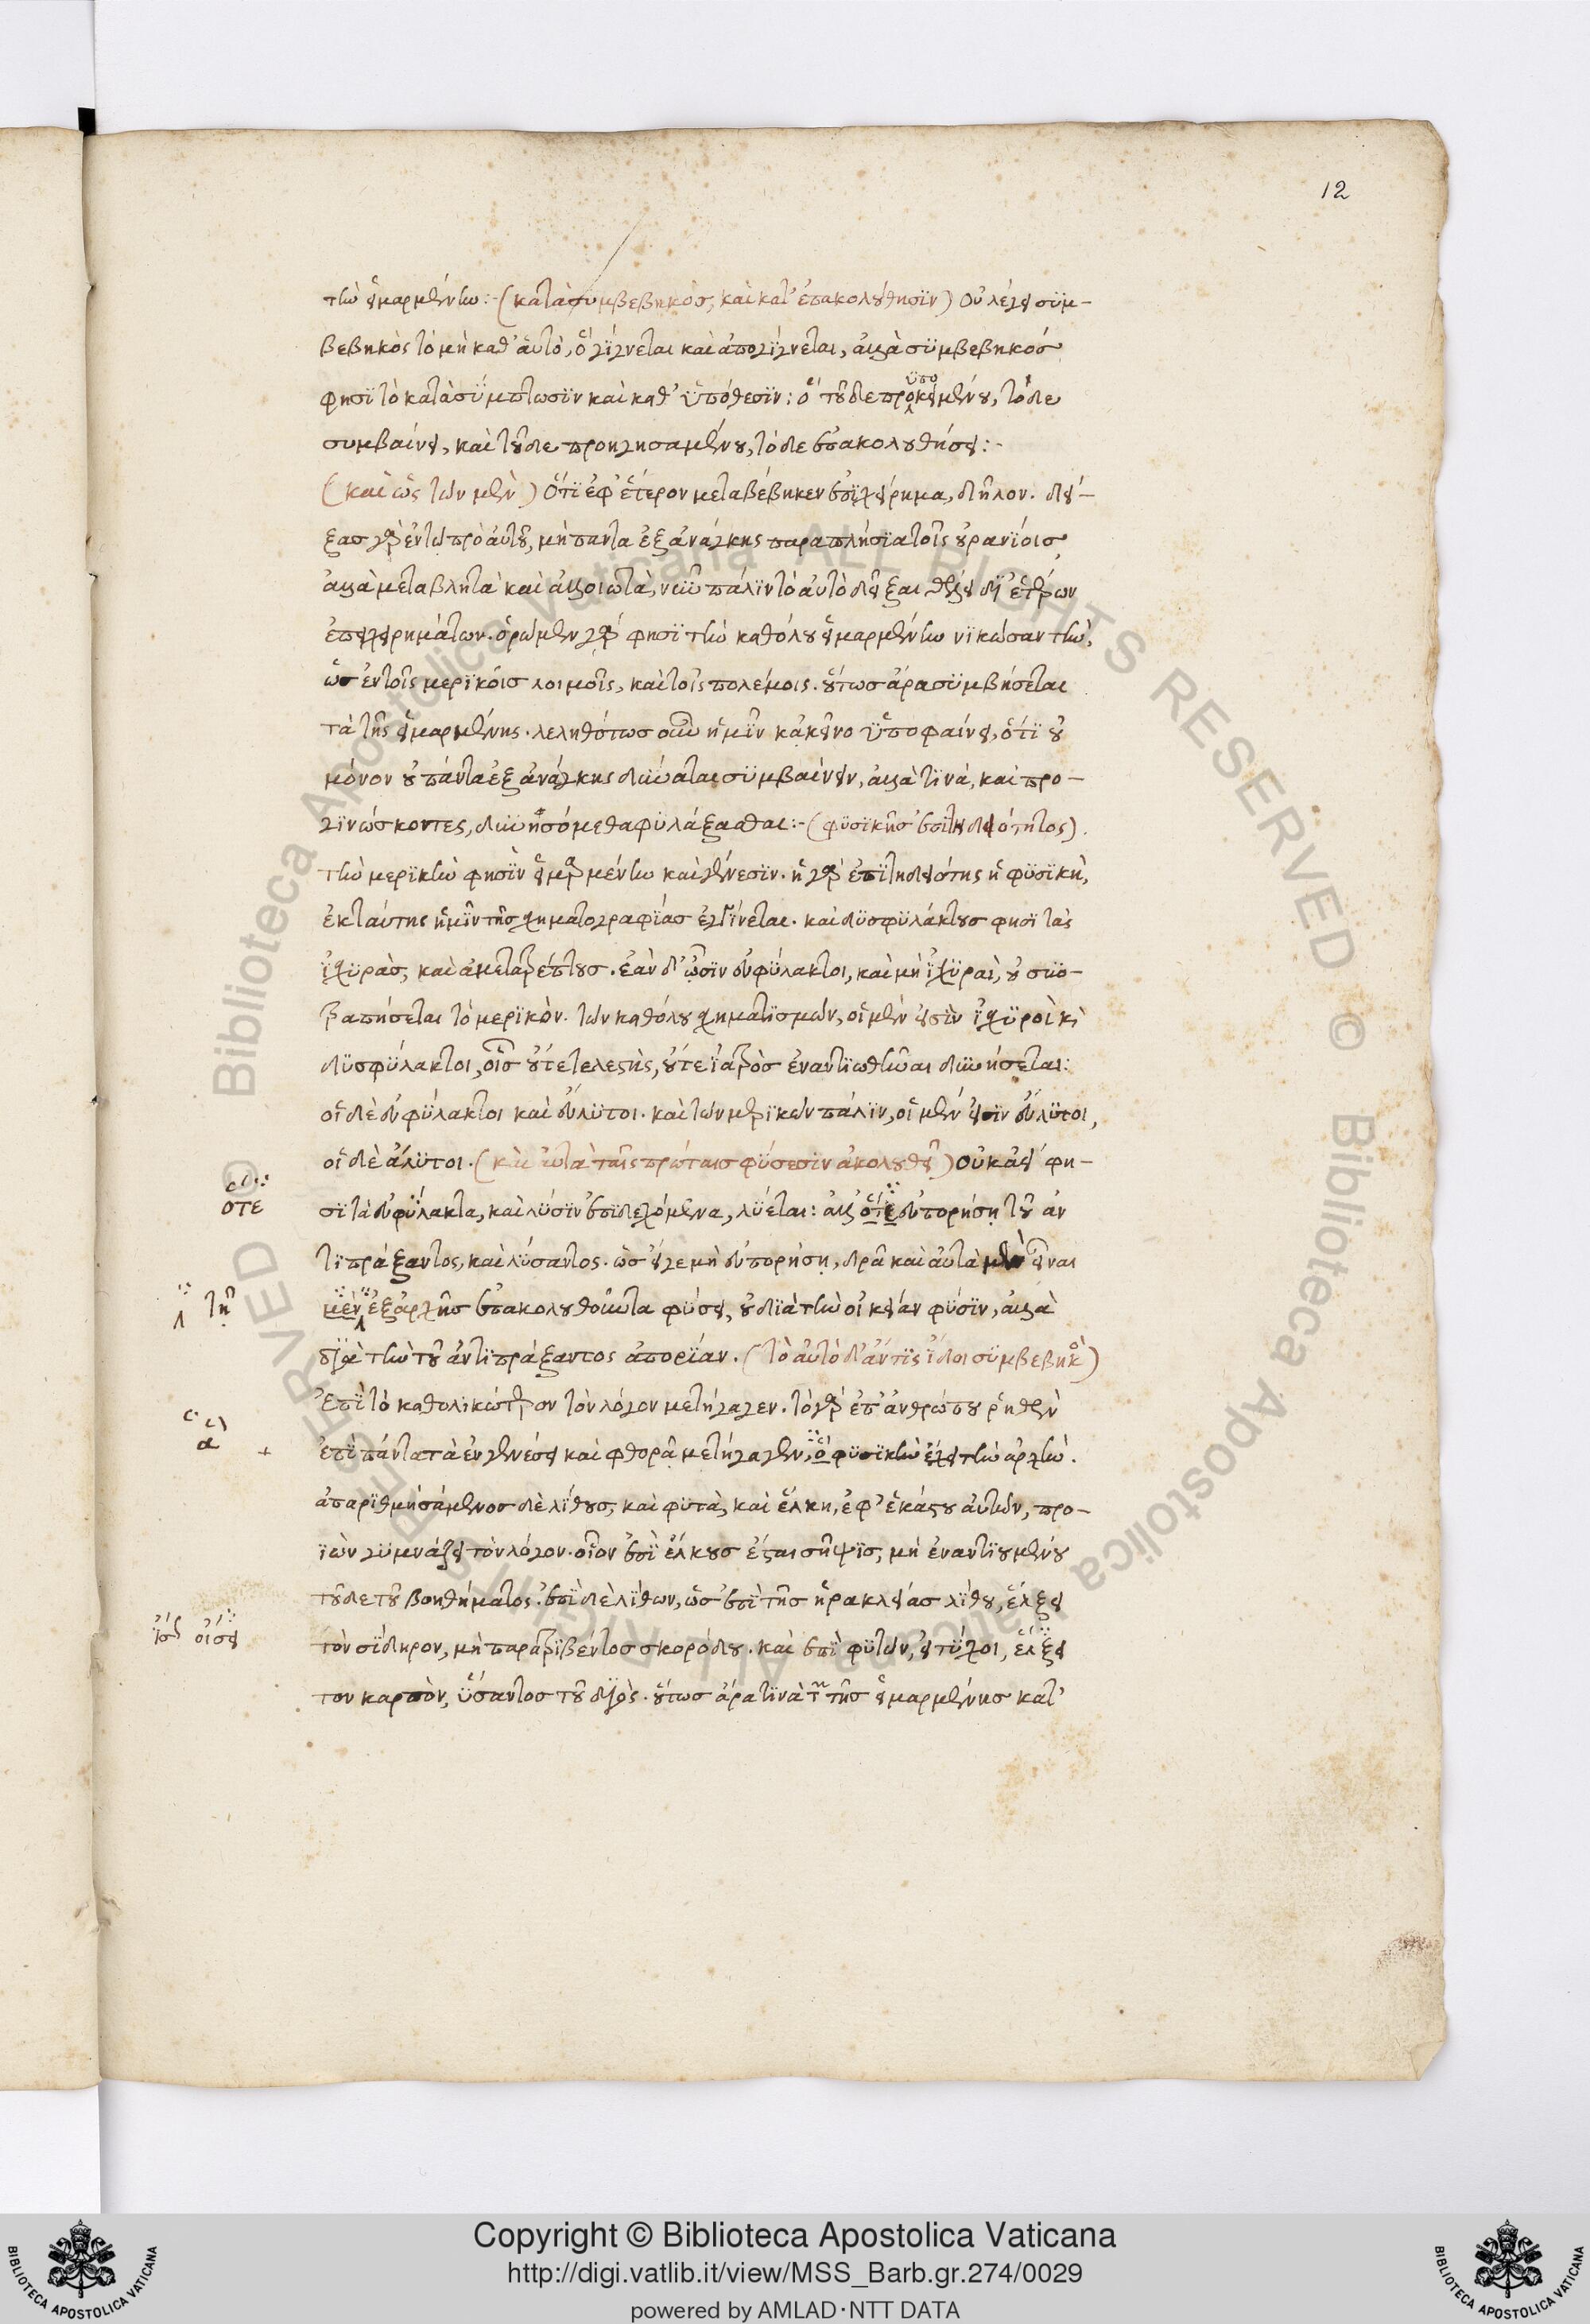 12
τὴν εἱμαρμένην:-(κατὰ συμβεβηκὸς, καὶ κατ' ἐπακολούθησϊν) Οὐ λέγει σϋμ-
βεβηκὸς τὸ μὴ καθ' αὑτὸ, ὃ γίγνεται καὶ ἀπογίγνεται, ἀλλὰ σϋμβεβηκὸς
φησῒ τὸ κατὰ σΰμπτωσϊν καὶ καθ' ὑπόθεσϊν: ὅ τοῦδε προϋποκειμένου, τόδε
συμβαίνει, καὶ τοῦδε προηγησαμένου, τόδε ἐπακολουθήσει:-
(καὶ ὡς τῶν μὲν) Ὅτι ἐφ' ἕτερον μεταβέβηκεν ἐπιχείρημα, δῆλον. δεί-
ξας γὰρ ἐν τῷ πρὸ αὐτοῦ, μὴ πάντα ἐξ ἀνάγκης παραπλήσια τοῖς οὐρανίοις
ἀλλὰ μεταβλητὰ καὶ ἀλλοιωτὰ, νῦν πάλιν τὸ αὐτὸ δεῖξαι θέλει δι' ἑτέρων
ἐπιχειρημάτων. ὁρῶμεν γάρ φησϊ τὴν καθόλου εἱμαρμένην νικῶσαν τὴν,
ὡς ἐν τοῖς μερικοῖς λοιμοῖς, καὶ τοῖς πολέμοις. οὕτως ἄρα συμβήσεται
τὰ τῆς εἱμαρμένης. λεληθότως οὖν ἡμῖν κἀκεῖνο ὑποφαίνει, ὅτι οὐ
μόνον οὐ πάντα ἐξ ἀνάγκης δύναται συμβαίνειν, ἀλλὰ τινὰ, καὶ προ-
γινώσκοντες, δυνησόμεθα φυλάξασθαι:-(φυσικῆς ἐπιτηδειότητος).
τὴν μερικὴν φησὶν εἱμαρμένην καὶ γένεσιν. ἡ γὰρ ἐπιτηδειότης ἡ φυσικὴ,
ἐκ ταύτης ἡμῖν τῆς σχηματογραφίας ἐγγίνεται. καὶ δυσφυλάκτους φησὶ τὰς
ἰσχυρὰς, καὶ ἀμετατρέπτους. ἐὰν δ' ὦσιν εὐφύλακτοι, καὶ μὴ ἰσχυραὶ, οὐ συν-
τραπήσεται τὸ μερικὸν. τῶν καθόλου σχηματισμῶν, οἱ μὲν εἰσὶν ἰσχυροὶ κὶ
δυσφύλακτοι, οἷς οὔτε τελεστὴς, οὔτε ἰατρὸς ἐναντιωθῆναι δυνήσεται:
οἱ δὲ εὐφύλακτοι καὶ εὔλυτοι. καὶ τῶν μερικῶν πάλιν, οἱ μέν εἰσιν εὔλυτοι,
οἱ δὲ ἄλυτοι. (καὶ αὐτὰ ταῖς πρώταις φύσεσιν ἀκολουθεῖ) οὐκ ἀεί φη-
σὶ τὰ εὐφύλακτα, καὶ λύσιν ἐπιδεχόμενα, λύεται: ἀλλ' ὅτε εὐπορήσῃ τοῦ ἀν
τιπράξαντος, καὶ λύσαντος. ὡς εἴγε μὴ εὐπορήσῃ, δρᾶ καὶ αὐτὰ εἶναι
μὲν ἐξ ἀρχῆς ἐπακολουθοῦντα φύσει, οὐ διὰ τὴν οἰκείαν φύσιν, ἀλλὰ
διὰ τὴν τοῦ ἀντιπράξαντος ἀπορίαν. (τὸ αὐτὸ δ' ἄν τις ἴδοι συμβεβηκὸ)
Ἐπὶ τὸ καθολικώτερον τὸν λόγον μετήγαγεν. τὸ γὰρ ἐπ' ἀνθρώπου ῥηθὲν
ἐπὶ πάντα τὰ ἐν γενέσει καὶ φθορᾷ μετήγαγεν, ὃ φυσικὴν ἔχει τὴν ἀρχὴν.
ἀπαριθμησάμενος δὲ λίθους, καὶ φυτὰ, καὶ ἕλκη, ἐφ' ἑκάστου αὐτῶν, προ-
ϊὼν γυμνάζει τὸν λόγον. οἷον ἐπὶ ἕλκους ἔσται σῆψις, μὴ ἐναντιουμένου
τοῦδε τοῦ βοηθήματος. ἐπὶ δὲ λίθων, ὡς ἐπὶ τῆς ἡρακλείας λίθου, ἕλξει
τὸν σίδηρον, μὴ παρατριβέντος σκορόδου. καὶ ἐπὶ φυτῶν, εἰ τύχοι, ἕλξει
τον καρπὸν, ὕσαντος τοῦ διὸς. οὕτως ἄρα τινὰ τῆς εἱμαρμένης κατ'
οτε
τῇ
ἃ
οἴσει
Copyright © Biblioteca Apostolica Vaticana
http://digi.vatlib.it/view/MSS_Barb.gr.274/0029
powered by AMLAD·NTT DATA
BIBLIOTECA APOSTOLICA VATICANA
BIBLIOTECA APOSTOLICA VATICANA